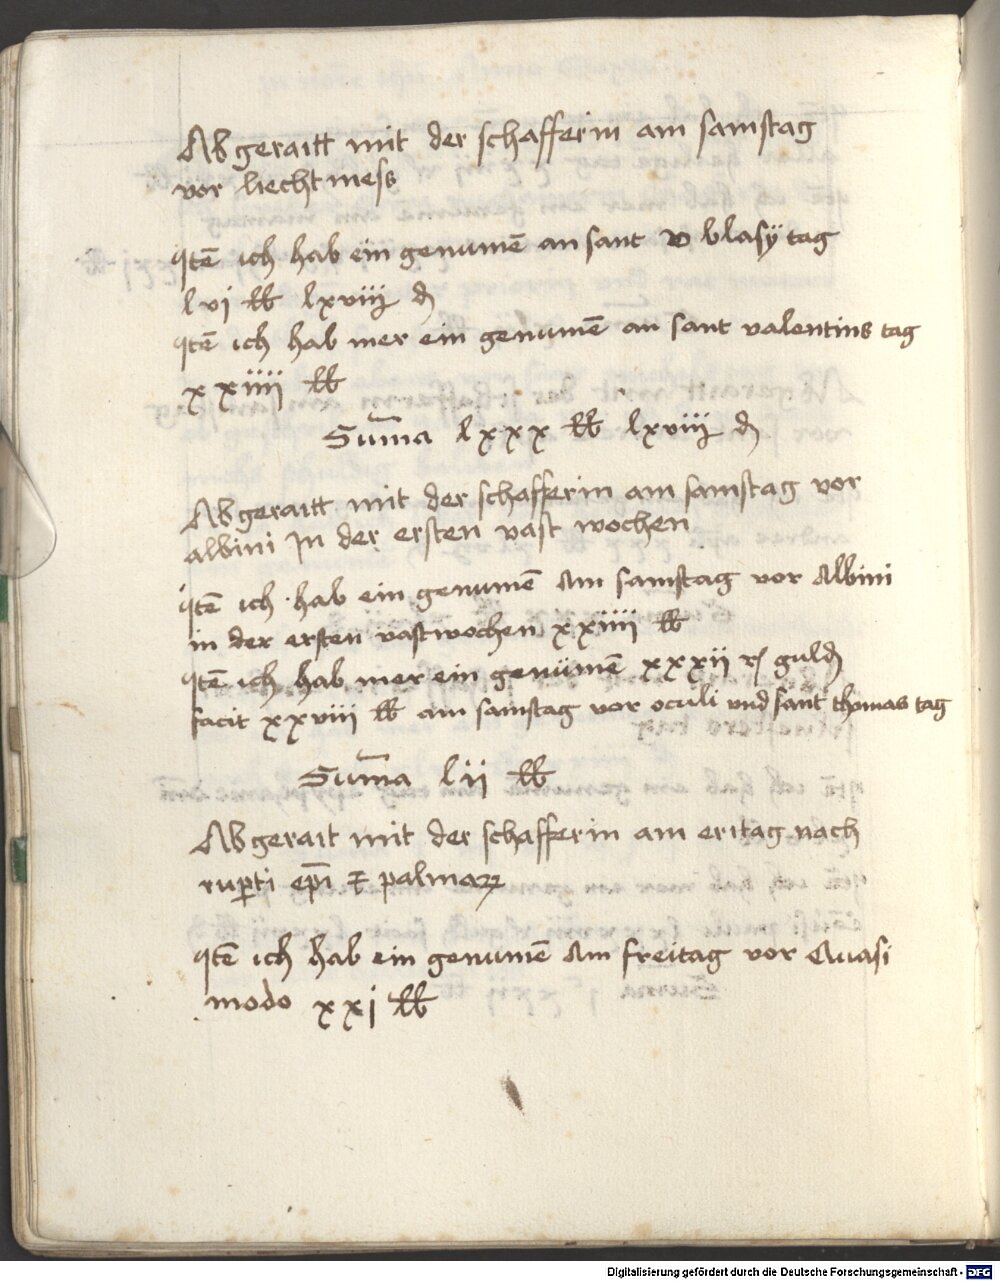 Abgeraitt mit der schafferin am samstag
vor liechtmess
Itē ich hab ein genumē an sant blasÿ tag
lvi lb lxviij d
Itē ich hab mer ein genumē an sant valentins tag
xxiiii lb
Suma lxxx lb lxviij d
Abgeraitt mit der schafferin am samstag vor
albini In der ersten vast wochen
Itē ich hab ein genumē Am samstag vor Albini
in der ersten vastwochen xxiiii lb
Itē ich hab mer ein genumē xxxii guld
facit xxviii lb am samstag vor oculi und sant thomas tag
Suma lii lb
Abgerait mit der schafferin am eritag nach
rupti epi palmarꝝ
Itē ich hab ein genumē Am freitag vor Quasi
modo xxj lb
Digitalisierung gefördert durch die Deutsche Forschungsgemeinschaft - DFG